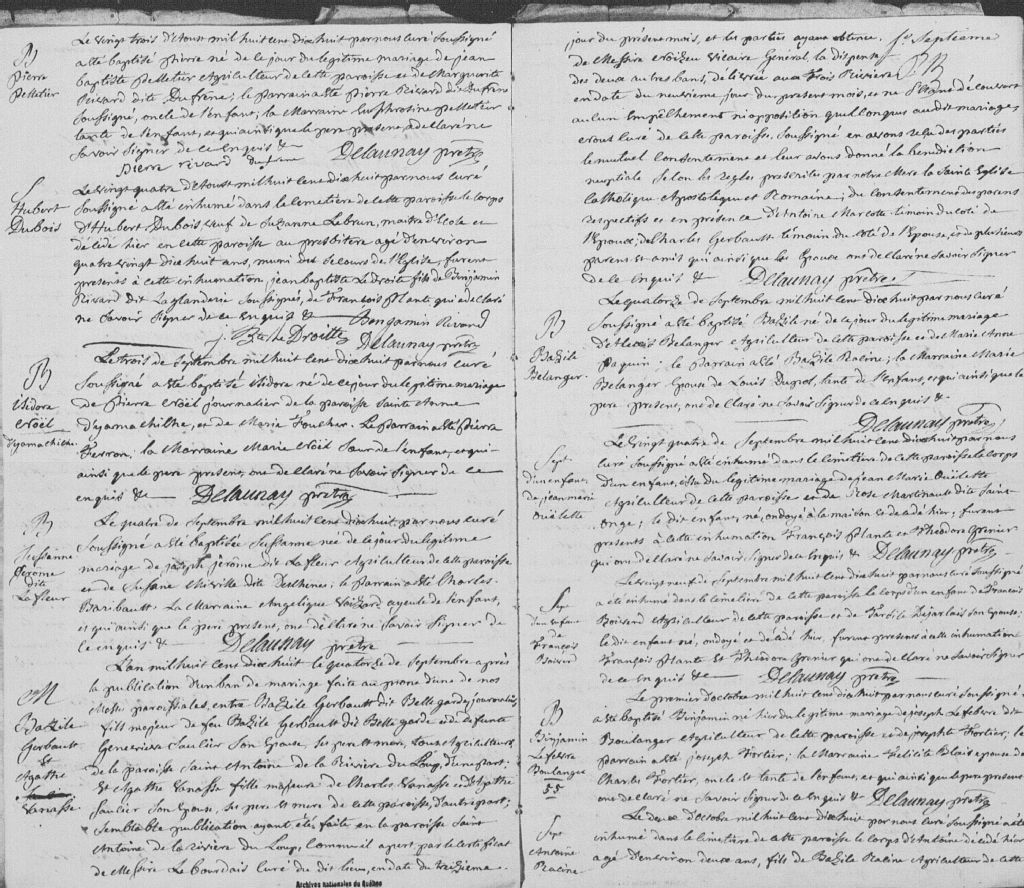 B
Pierre
Pelletier
Le vingt trois d'Aoust mil huit cent dix huit par nous curé soussigné
a été baptisé pierre né de ce jour du légitime mariage de jean
baptiste pelletier Agriculteur de cette paroisse et de Marguerite
Rivard dite Dufrêne; le parrain a été pierre Rivard dit Dufrene
soussigné, oncle de l'enfant; la Marraine Euphrosine pelletier
tante de l'enfant, et qui ainsi que le pere present, a déclaré ne
savoir signer de ce enquis &
pierre rivard dufrene Delaunay prêtre
S
Hubert
Dubois
Le vingt quatre d'Aoust mil huit cent dix huit par nous curé
soussigné a été inhumé dans le cimetière de cette paroisse le corps
d'Hubert Dubois veuf de Suzanne Lebrun, maitre d'Ecole et
décédé hier en cette paroisse au presbitère agé d'environ
quatre vingt dix huit ans, muni des secours de l'Eglise, furent
presens à cette inhumation, jean baptiste Ledroite fils de Benjamin
Rivard dit Laglanderie soussignés, de François Plante qui a declaré
ne savoir signer de ce enquis & Benjamin Rivard
j. Bte Le Droitte Delaunay prêtre
B
Isidore
Noël
Yamachiche
Le trois de septembre mil huit cent dix huit par nous curé
soussigné a été baptisé Isidore né de ce jour du légitime mariage
de Pierre Noël journalier de la paroisse Sainte Anne
d'yamachiche, et de Marie Foucher. Le parrain a été Pierre
Perron; la Marraine Marie Noël sœur de l'enfant, et qui
ainsi que le pere present, ont déclaré ne savoir signer de ce
enquis & Delaunay prêtre
B
Sussanne
Jérôme
dit
Lafleur
Le quatre de septembre mil huit cent dix huit par nous curé
soussigné a été baptisée Sussanne née de ce jour du légitime
mariage de joseph jérôme dit Lafleur Agriculteur de cette paroisse
et de Susane Miville dite Deschênes; le parrain a été Charles
Baribault. La Marraine Angelique ayeule de l'enfant,
et qui ainsi que le pere present, ont déclaré ne savoir signer de
ce enquis & Delaunay prêtre
M
BaZile
Gerbault
et
Agathe
Vanasse
L'an mil huit cent dix huit le quatorze de septembre après
la publication d'un ban de mariage faite au prone d'une de nos
Messes paroissiales, entre BaZile Gerbault dit Bellegarde journalier,
fils majeur de feu BaZile Gerbault dit Bellegarde et de feunte
Genevieve Saulier son Epouse, ses pere et mere, tous Agriculteurs
de la paroisse Saint Antoine de la Rivière du Loup, d'une part;
Et Agathe Vanasse fille majeure de Charles Vanasse et d'Agathe
Saulier son Epouse, ses pere et mere de cette paroisse, d'autre part;
semblable publication ayant été faite en la paroisse Saint
Antoine de la rivière du Loup, comme il apert par le certificat
de Messire Lebourdais curé du dit lieu, en date du treizieme
Archives nationales du Québec
jour du present mois, et les parties ayant obtenu
de Messire Noizeu Vicaire Général, la dispense
des deux autres bans, délivrée aux Trois Rivières
en date du neuvieme jour du present mois, et ne s'étant découvert
aucun empêchement ni opposition quelconque au dit mariage;
nous curé de cette paroisse, soussigné en avons reçu des parties
le mutuel consentement et leur avons donné la benediction
nuptiale selon les regles prescrites par notre Mere la Sainte Eglise
catholique Apostolique et Romaine; du consentement des parens
respectifs et en presence d'Antoine Marcote témoin du coté de
l'Epoux, de Charles Gerbault témoin du coté de l'Epouse, et de plusieurs
parens et amis qui ainsi que les Epoux ont déclaré ne savoir signer
de ce enquis & Delaunay prêtre
B
BaZile
Belanger
Le quatorze de Septembre mil huit cent dix huit par nous curé
soussigné a été baptisé BaZile né de ce jour du légitime mariage
d'Alexis Belanger Agriculteur de cette paroisse et de Marie Anne
Paquin; le parrain a été BaZile Racine; la Marraine Marie
Belanger Epouse de Louis Dupot, tante de l'enfant, et qui ainsi que le
pere present, ont declaré ne savoir signer de ce enquis &
Delaunay prêtre
Sept
d'un enfant
de jean marie
Ouélette
Le vingt quatre de septembre mil huit cent dix huit par nous
curé soussigné a été inhumé dans le cimetière de cette paroisse le corps
d'un enfant, issu du légitime mariage de jean Marie Ouélette
Agriculteur de cette paroisse et de Rose Martinault dite Saint
onge; le dit enfant, né, ondoyé à la maison et décédé hier; furent
presents à cette inhumation François Plante et Theodore Grenier
qui ont declaré ne savoir signer de ce enquis & Delaunay prêtre
Sept
d'un enfant
de
François
Boivard
Le vingt neuf de Septembre mil huit cent dix huit par nous curé soussigné
a été inhumé dans le cimetière de cette paroisse le corps d'un enfant de François
Agriculteur de cette paroisse et de Desjarlais son Epouse;
le dit enfant né, ondoyé et décédé hier, furent presents à cette inhumation
François Plante et Theodore Grenier qui ont declaré ne savoir signer
de ce enquis & Delaunay prêtre
B
Binjamin
Lefebvre
Boulanger
55
Le premier d'octobre mil huit cent dix huit par nous curé soussigné
a été baptisé Binjamin né hier du légitime mariage de joseph Lefebvre dit
Boulanger Agriculteur de cette paroisse et de josephte Fortier; le
parrain a été joseph Fortier; la Marraine Felicité Blais epouse de
Charles Fortier, oncle et tante de l'enfant, et qui ainsi que le pere present
ont declaré ne savoir signer de ce enquis & Delaunay prêtre
Sept
Antoine
Racine
Le deux d'octobre mil huit cent dix huit par nous curé soussigné a été
inhumé dans le cimetière de cette paroisse le corps d'Antoine décédé hier
agé d'environ deux ans, fils de BaZile Racine Agriculteur de cette